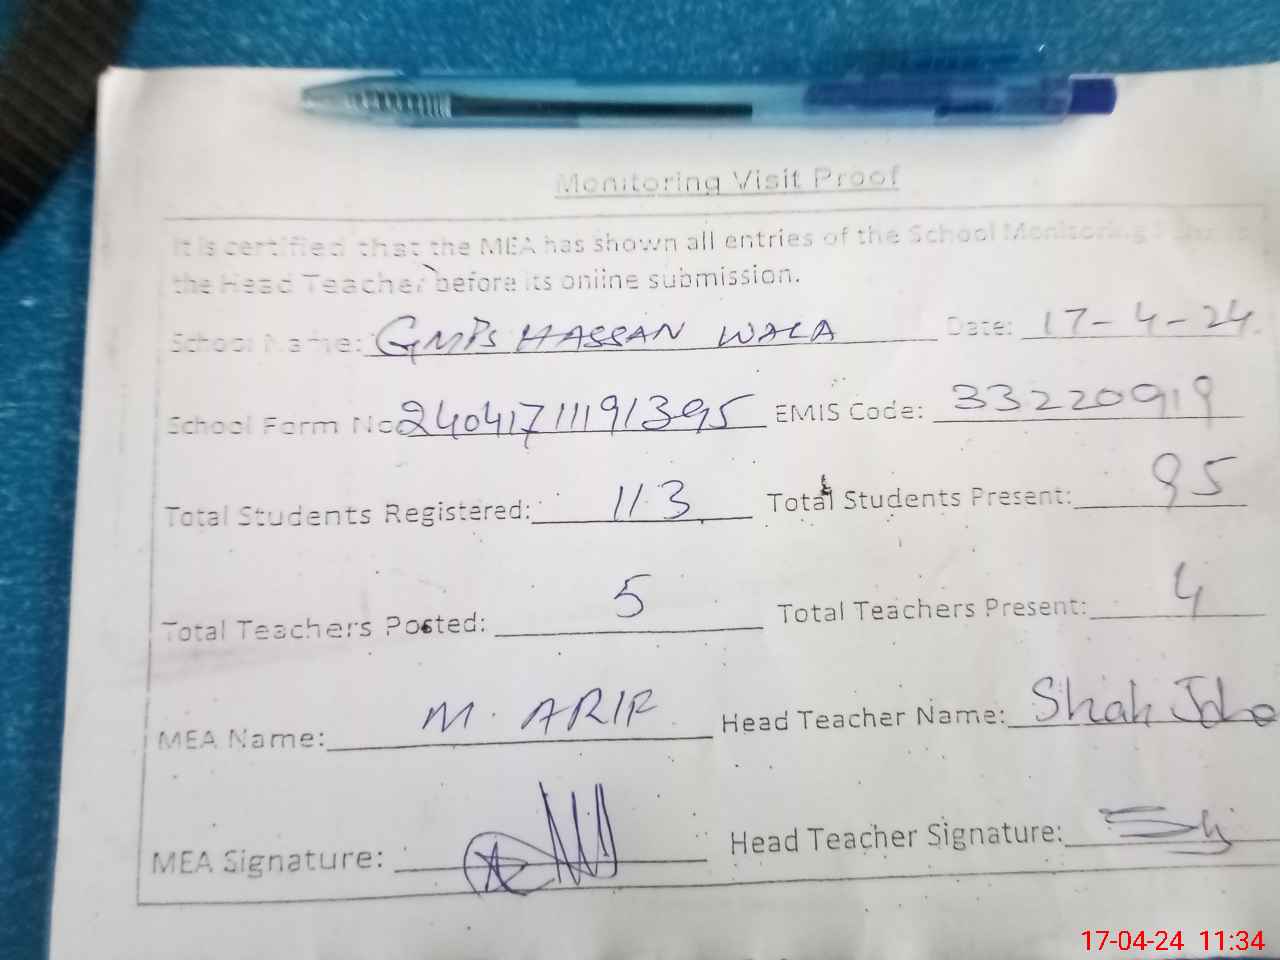 Monitoring Visit Proof
It is certified that the MEA has shown all entries of the School Monitoring
the Head Teacher before its online submission.
School Name: GMPS HASSAN WALA Date: 17-4-24
School Form No 24041711191395 EMIS Code: 33220919
Total Students Registered: 113 Total Students Present: 95
Total Teachers Posted: 5 Total Teachers Present: 4
MEA Name: M. ARIF Head Teacher Name: Shah
MEA Signature: Head Teacher Signature:
17-04-24 11:34